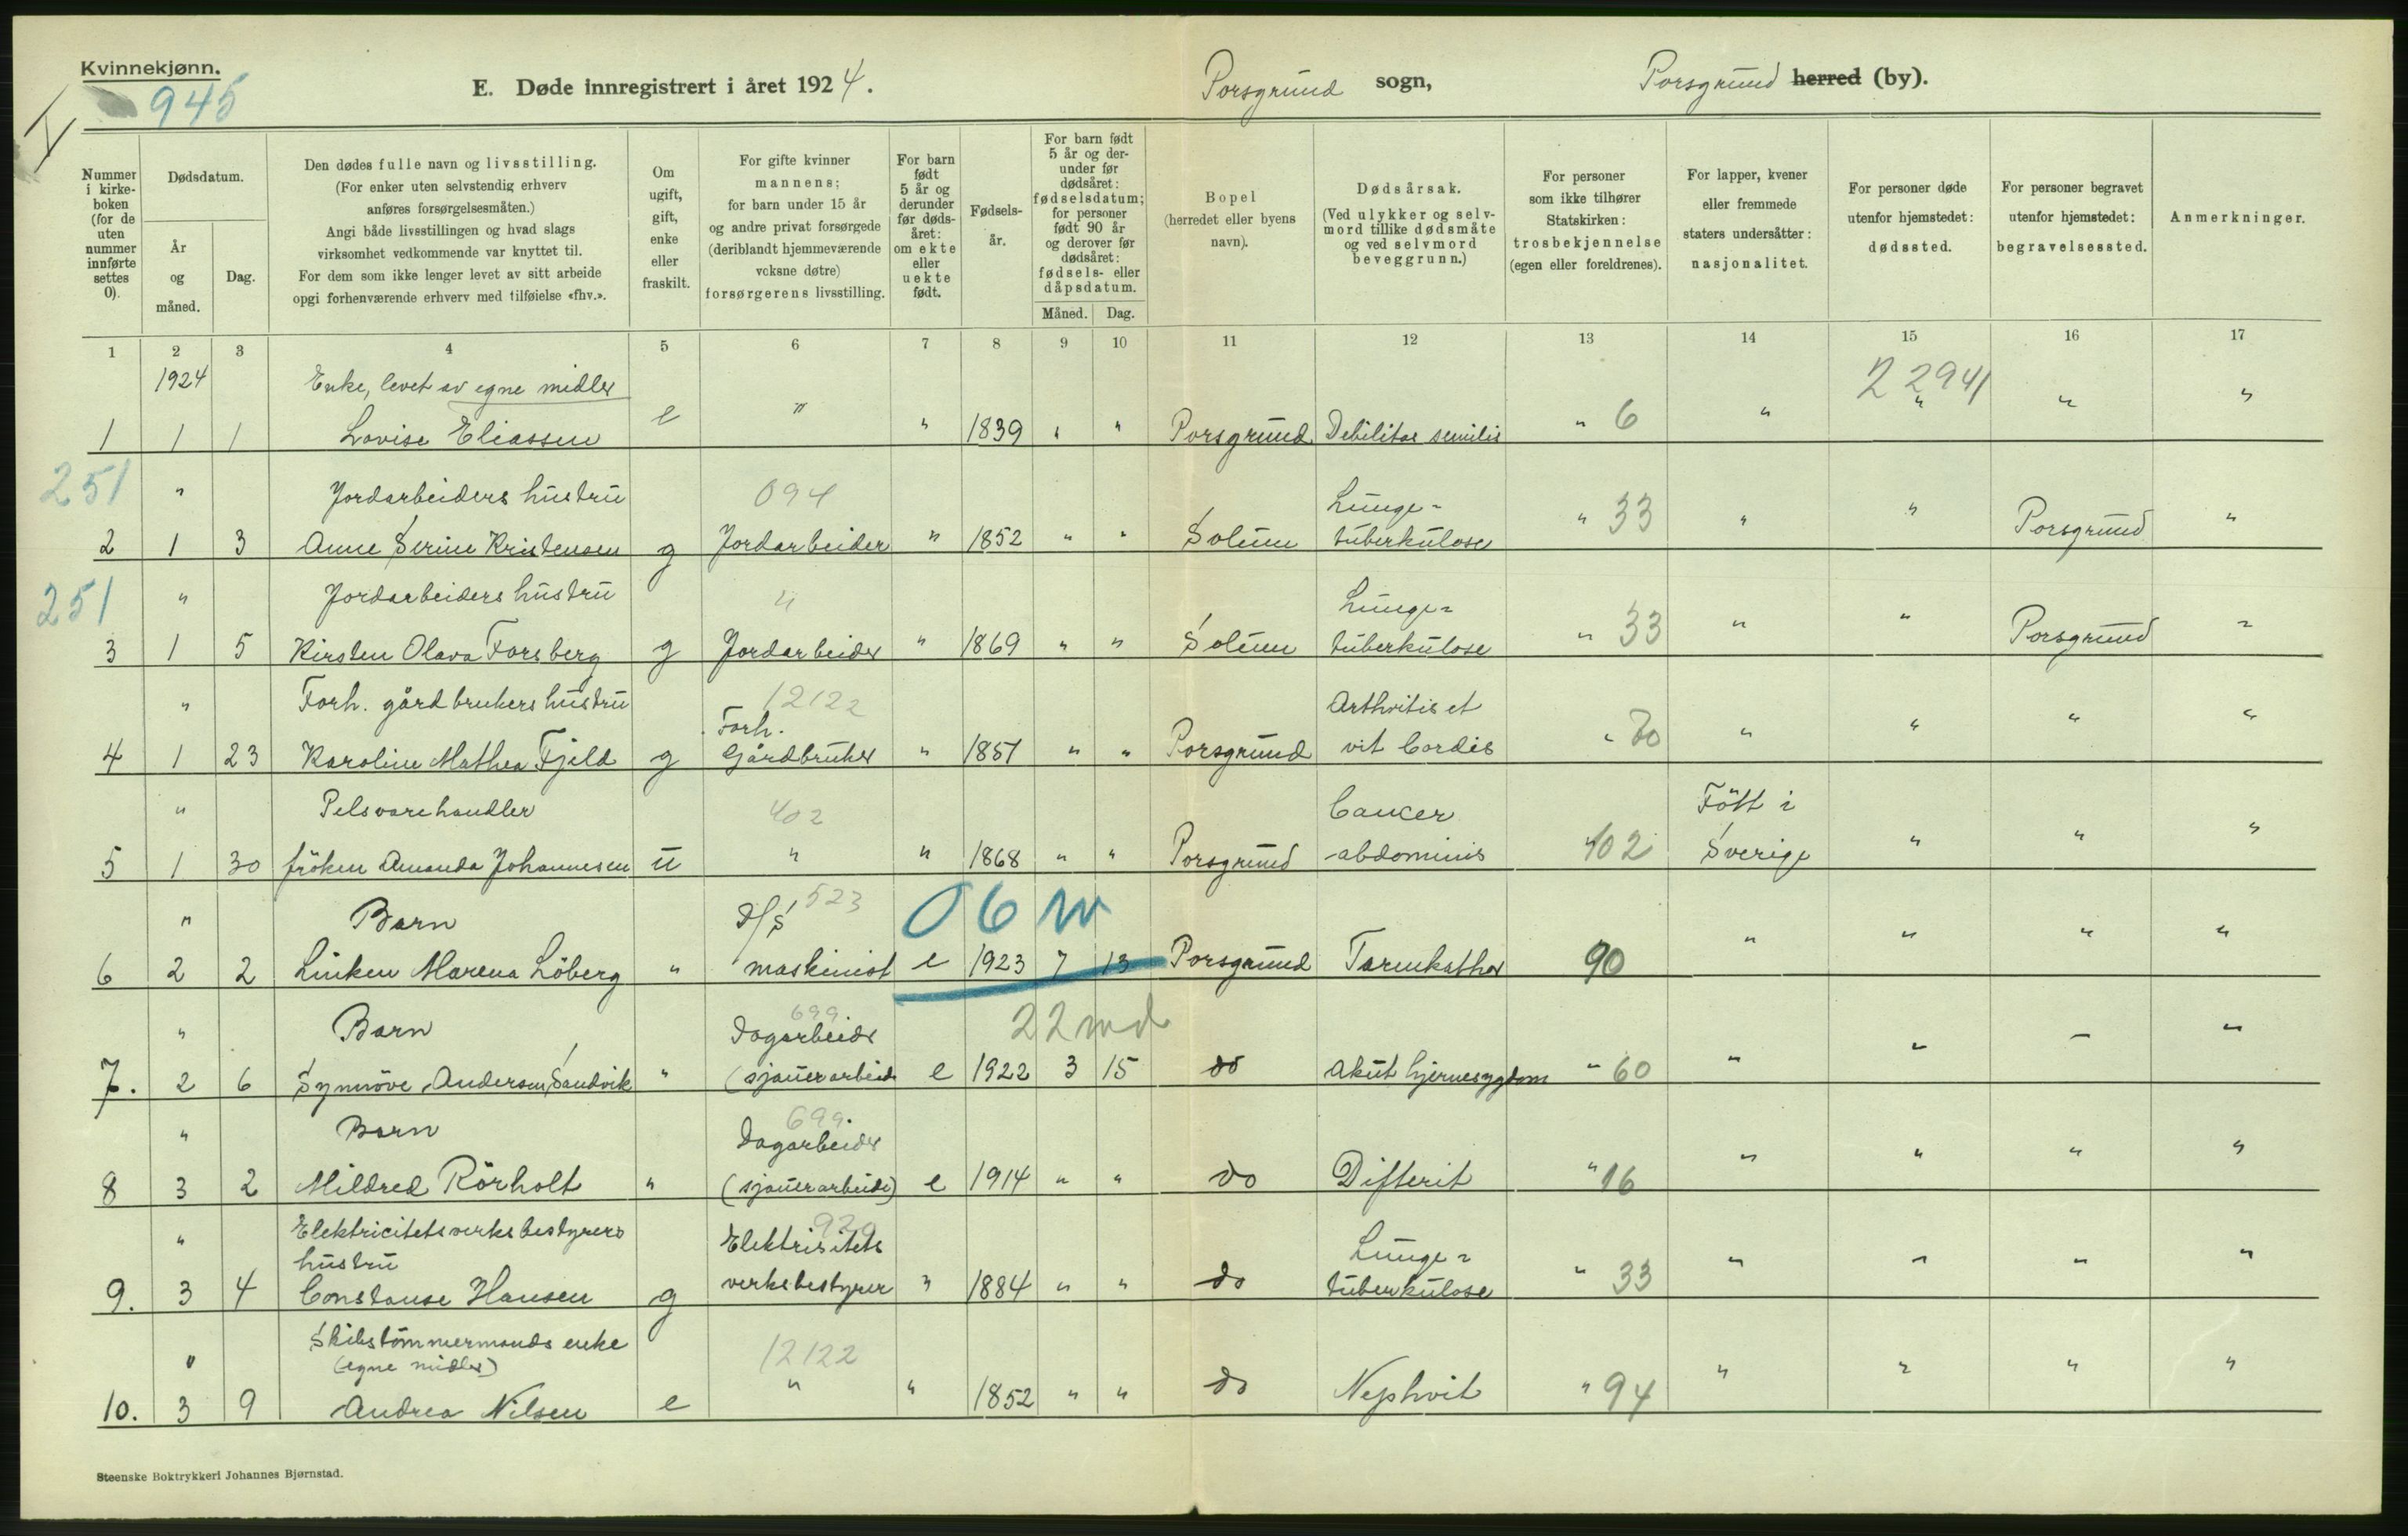 Kvinnekjønn.
945
E. Døde innregistrert i året 1924.
Porsgrund sogn,
Porsgrund herred (by).
Nummer i kirkeboken (for de uten nummer innførte settes 0).
Dødsdatum.
År og måned.
Dag.
Den dødes fulle navn og livsstilling.
(For enker uten selvstendig erhverv
anføres forsørgelsesmåten.)
Angi både livsstillingen og hvad slags
virksomhet vedkommende var knyttet til.
For dem som ikke lenger levet av sitt arbeide
opgi forhenværende erhverv med tilføielse «fhv.».
Om ugift, gift, enke eller fraskilt.
For gifte kvinner
mannens;
for barn under 15 år
og andre privat forsørgede
(deriblandt hjemmeværende
voksne døtre)
forsørgerens livsstilling.
For barn født 5 år og derunder før dødsåret: om ekte eller uekte født.
Fødselsår.
For barn født 5 år og derunder før dødsåret: fødselsdatum; for personer født 90 år og derover før dødsåret: fødsels- eller dåpsdatum.
Måned. Dag.
Bopel
(herredet eller byens
navn).
Dødsårsak.
(Ved ulykker og selvmord tillike dødsmåte
og ved selvmord
beveggrunn.)
For personer
som ikke tilhører
Statskirken:
trosbekjennelse
(egen eller foreldrenes).
For lapper, kvener
eller fremmede
staters undersåtter:
nasjonalitet.
For personer døde
utenfor hjemstedet:
dødssted.
For personer begravet
utenfor hjemstedet:
begravelsessted.
Anmerkninger.
1 2 3 4 5 6 7 8 9 10 11 12 13 14 15 16 17
1924 Enke, levet av egne midler 2 2941
1 1 1 Lovise Eliassen e " " 1839 " " Porsgrund Debilitas senilis " 6 " " " "
251 " Jordarbeiders hustru 094 Lunge-
2 1 3 Anne Serine Kristensen g Jordarbeider " 1852 " " Solum tuberkulose " 33 " " Porsgrund "
251 " Jordarbeiders hustru " Lunge-
3 1 5 Kirsten Olava Forsberg g Jordarbeider " 1869 " " Solum tuberkulose " 33 " " Porsgrund "
" Forh. gårdbrukers hustru 12122 Forh. Arthritis et
4 1 23 Karoline Mathea Fjeld g Gårdbruker " 1851 " " Porsgrund vit Cordis " " " " "
" Pelsvarehandler 402 Cancer Født i
5 1 30 frøken Amanda Johannesen u " " 1868 " " Porsgrund abdominis 402 Sverige " " "
" Barn D/S 523 06 m
6 2 2 Linken Marena Löberg " maskinist e 1923 7 13 Porsgrund Tarmkathar 90 " " " "
" Barn 699 Dagarbeider 22 md
7. 2 6 Synnöve Andersen Sandvik " (sjauerarbeid e 1922 3 15 do Akut hjernesygdom " 60 " " " "
" Barn 699 Dagarbeider
8 3 2 Mildred Rörholt " (sjauerarbeide) e 1914 " " do Difterit " 16 " " " "
" Elektricitetsverksbestyrers 929 Elektrisitets Lunge-
hustru
9. 3 4 Constanse Hansen g verksbestyrer " 1884 " " do tuberkulose " 33 " " " "
" Skibstömmermands enke 12122
(egne midler)
10. 3 9 Andrea Nilsen e " " 1852 " " do Nephrit " 94 " " " "
Steenske Boktrykkeri Johannes Bjørnstad.